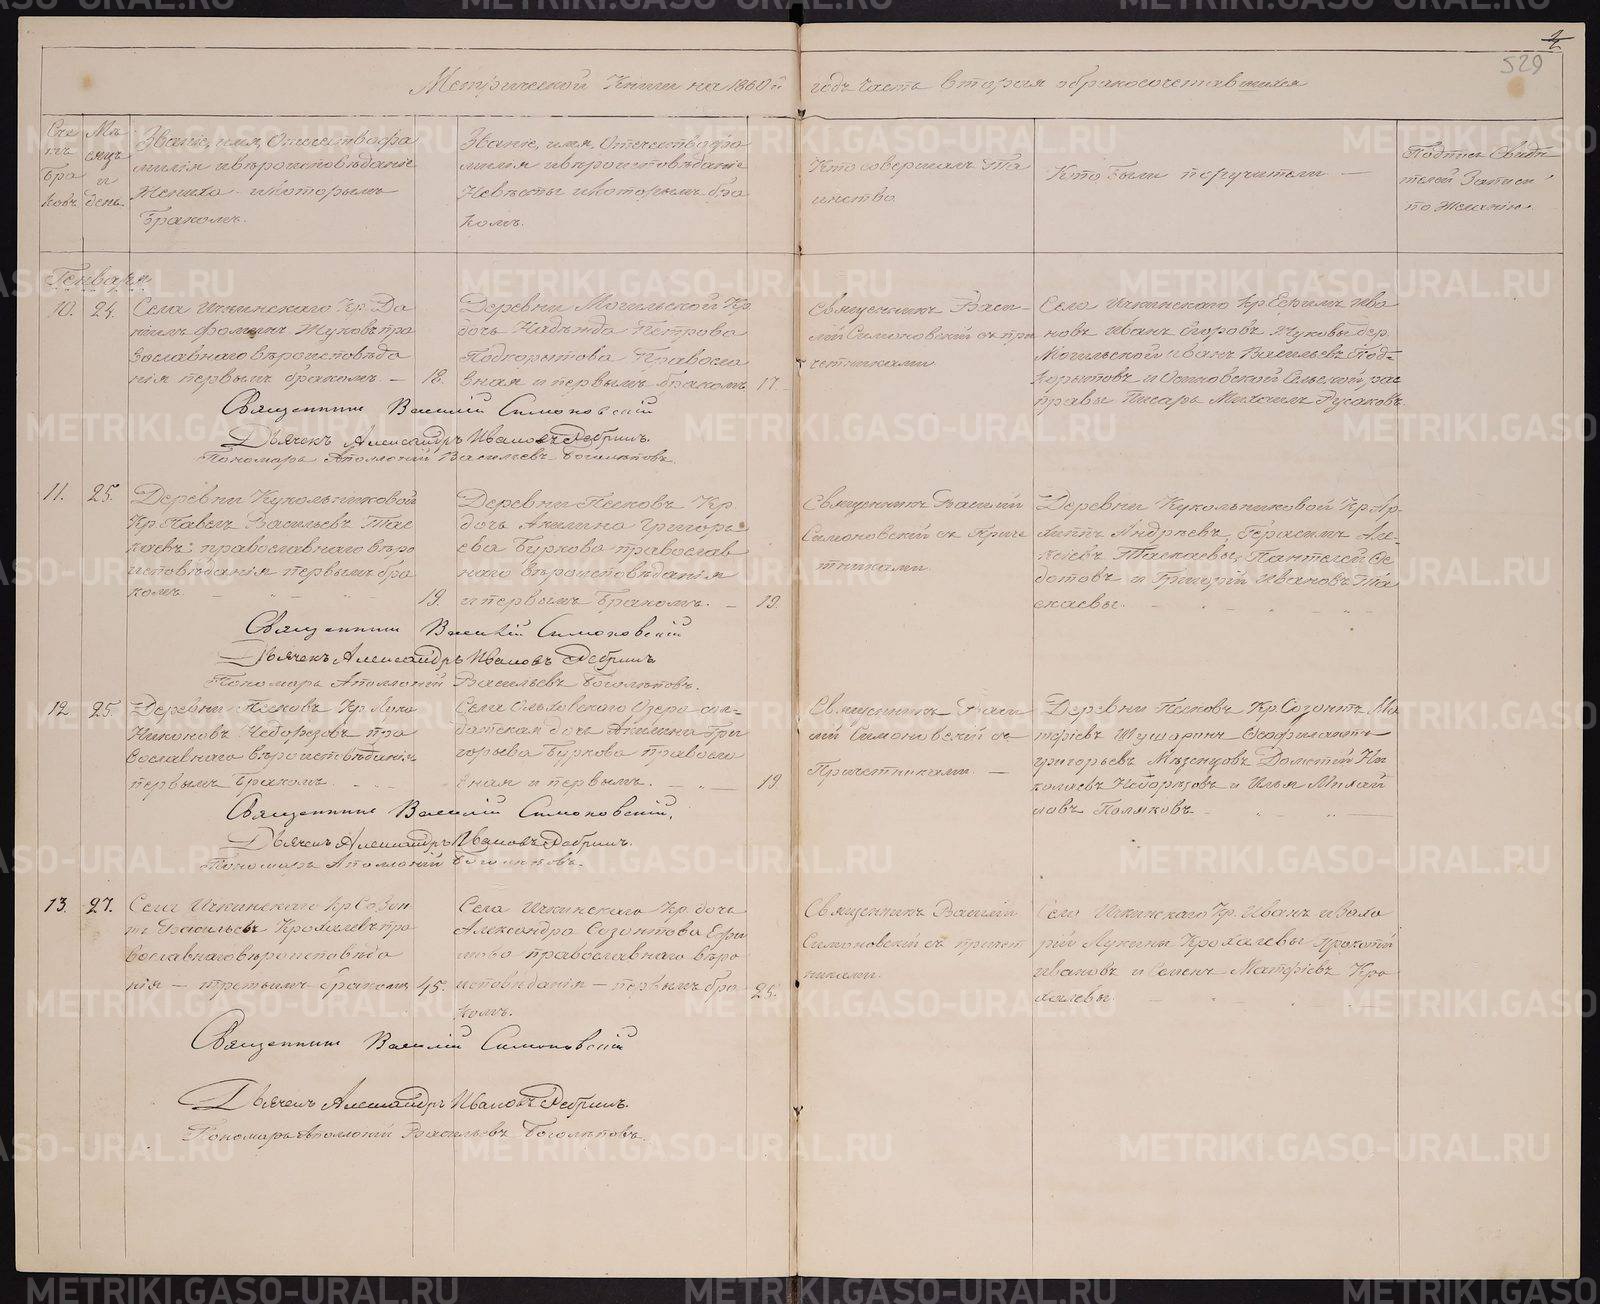 Метрической Книги на 1860й годъ часть вторая обракосочетавшихся
529
Сче
тъ
бра
ковъ
Мѣ
сяцъ
и
день.
Званіе, имя, Отчество фа
милія и вѣроисповѣданіе
Жениха и которымъ
бракомъ.
Званіе, имя, Отчество фа
милія и вѣроисповѣданіе
Невѣсты и которымъ бра
комъ.
Кто совершалъ Та
инство
Кто были поручители —
Подпись Свидѣ
телей Записи
по Желанію.
Генваря
10. 24.
Села Ичкинскаго Кр. Да
ніилъ Фоминъ Жуковъ пра
вославнаго вѣроисповѣда
нія первымъ бракомъ. — 18.
Деревни Могильской Кр
дочь Надѣжда Петрова
Подкорытова Правосла
вная и первымъ бракомъ 17.
Священникъ Васи-
лій Симоновскій съ при
четниками.
Села Ичкинскаго Кр Ефимъ Ива
новъ Иванъ Егоровъ Жуковы дер.
Могильской Иванъ Васильевъ Под-
корытовъ и Осиновской Сельской рас
правы Писарь Михаилъ Русаковъ.
Священникъ Василій Симоновскій
Дьячекъ Александръ Ивановъ Ребринъ.
Пономарь Аполлоній Васильевъ Боголѣповъ.
11. 25.
Деревни Кукольниковой
Кр. Павелъ Васильевъ Тас
каевъ православнаго вѣро
исповѣданія первымъ бра
комъ. 19.
Деревни Песковъ Кр.
дочь Акилина Григорь
ева Буркова православ
наго вѣроисповѣданія
и первымъ бракомъ. — 19.
Священникъ Василій
Симоновскій съ Приче
тниками.
Деревни Кукольниковой Кр. Ар-
хипъ Андреевъ, Герасимъ Але-
ксѣевъ Таскаевы, Пантелей Ѳе
дотовъ и Григорій Ивановъ Та
скаевы.
Священникъ Василій Симоновскій
Дьячекъ Александръ Ивановъ Ребринъ
Пономарь Аполлоній Васильевъ Боголѣповъ.
12. 25.
Деревни Песковъ Кр Лука
Никоновъ Неборезовъ пра
вославнаго вѣроисповѣданія
первымъ бракомъ.
Села Ольховскаго Озера сол-
датская дочь Акилина Гри
горьева Буркова правосла
вная и первымъ. 19
Священникъ Васи
лій Симоновскій съ
Причетниками. —
Деревни Песковъ Кр Созонтъ Ма
тфіевъ Шушаринъ Ѳеофилактъ
Григорьевъ Мѣзенцовъ Дометій Ни
колаевъ Неборезовъ и Илья Михай
ловъ Поляковъ
Священникъ Василій Симоновскій.
Дьячекъ Александръ Ивановъ Ребринъ.
Пономарь Аполлоній Боголѣповъ.
13. 27.
Села Ичкинскаго Кр Созон
тъ Васильевъ Крохалевъ пра
вославнаго вѣроисповѣда
нія — третьимъ бракомъ 45.
Села Ичкинскаго Кр. дочь
Александра Созонтова Ефи
мова православнаго вѣро
исповѣданія — первымъ бра 25.
комъ.
Священникъ Василій
Симоновскій съ причет
никами.
Села Ичкинскаго Кр. Иванъ и Вале
рій Лукины Крохалевы Прокопій
Ивановъ и Семенъ Матфіевъ Кро
халевы.
Священникъ Василій Симоновскій
Дьячекъ Александръ Ивановъ Ребринъ.
Пономарь Аполлоній Васильевъ Боголѣповъ.
METRIKI.GASO-URAL.RU